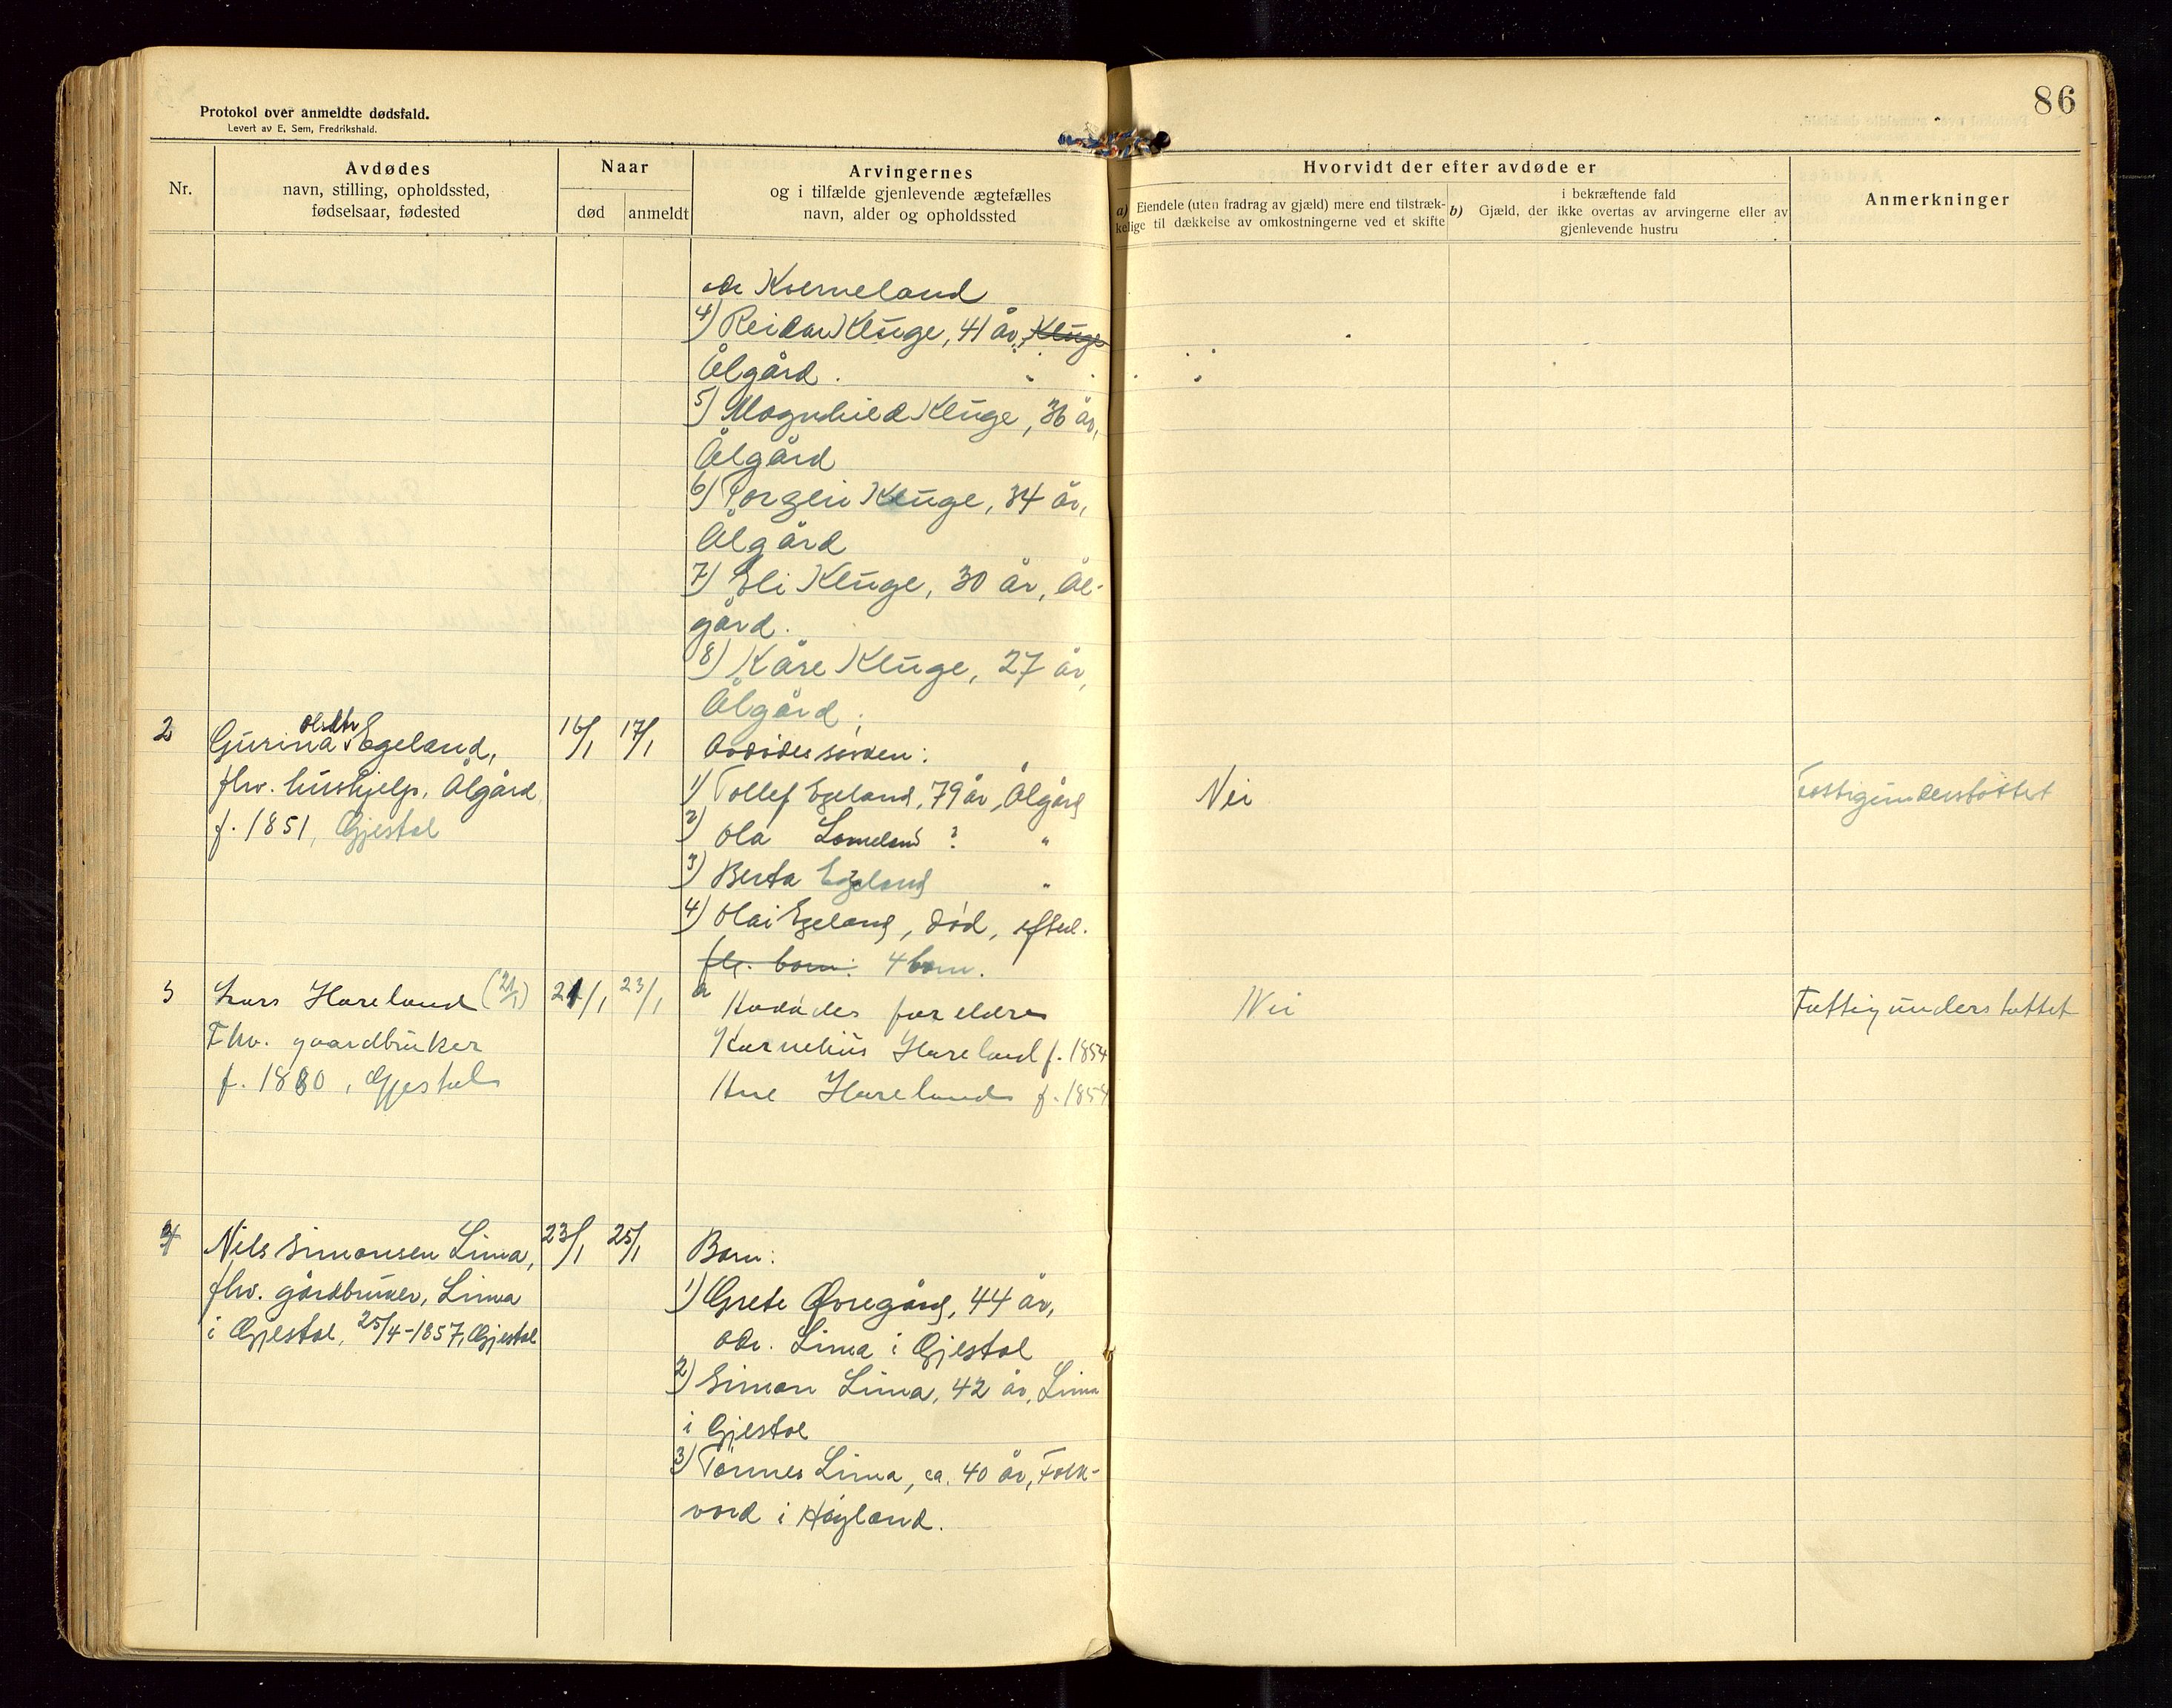 86
Protokol over anmeldte dødsfald.
Levert av E. Sem, Fredrikshald.
Nr.
Avdødes
navn, stilling, opholdssted,
fødselsaar, fødested
Naar
død
anmeldt
Arvingernes
og i tilfælde gjenlevende ægtefælles
navn, alder og opholdssted
Hvorvidt der efter avdøde er
a) Eiendele (uten fradrag av gjæld) mere end tilstræk-
kelige til dækkelse av omkostningerne ved et skifte
i bekræftende fald
b) Gjæld, der ikke overtas av arvingerne eller av
gjenlevende hustru
Anmerkninger
Kverneland
4) Reidar Kluge, 41 år, Kluge
Ålgård.
5) Magnhild Kluge, 36 år,
Ålgård
6) Torgeir Kluge, 34 år,
Ålgård
7) Eli Kluge, 30 år, Ål-
gård.
8) Kåre Kluge, 27 år,
Ålgård.
2
Gurina Olsdtr Egeland,
fhv. hushjelp, Ålgård
f. 1851, Gjestal
16/1
17/1
Avdødes søsken:
1) Tollef Egeland, 79 år, Ålgård
2) Ola ? "
3) Berta Egeland "
4) Olai Egeland, død, efterl.
fl. barn. 4 barn.
Nei
Fattigunderstøttet
3
Lars Hareland (21/1)
Fhv. gaardbruker
f. 1880, Gjestal
21/1
23/1
a Avdødes foreldre
Kornelius Hareland f. 1854
Ane Hareland f. 1854
Nei
Fattigunderstøttet
4
Nils Simonsen Lima,
fhv. gårdbruker, Lima
i Gjestal, 25/4-1857, Gjestal
23/1
25/1
Barn:
1) Grete Øvregård, 44 år,
adr. Lima i Gjestal
2) Simon Lima, 42 år, Lima
i Gjestal
3) Tønnes Lima, ca. 40 år, Folk-
vord i Høyland.